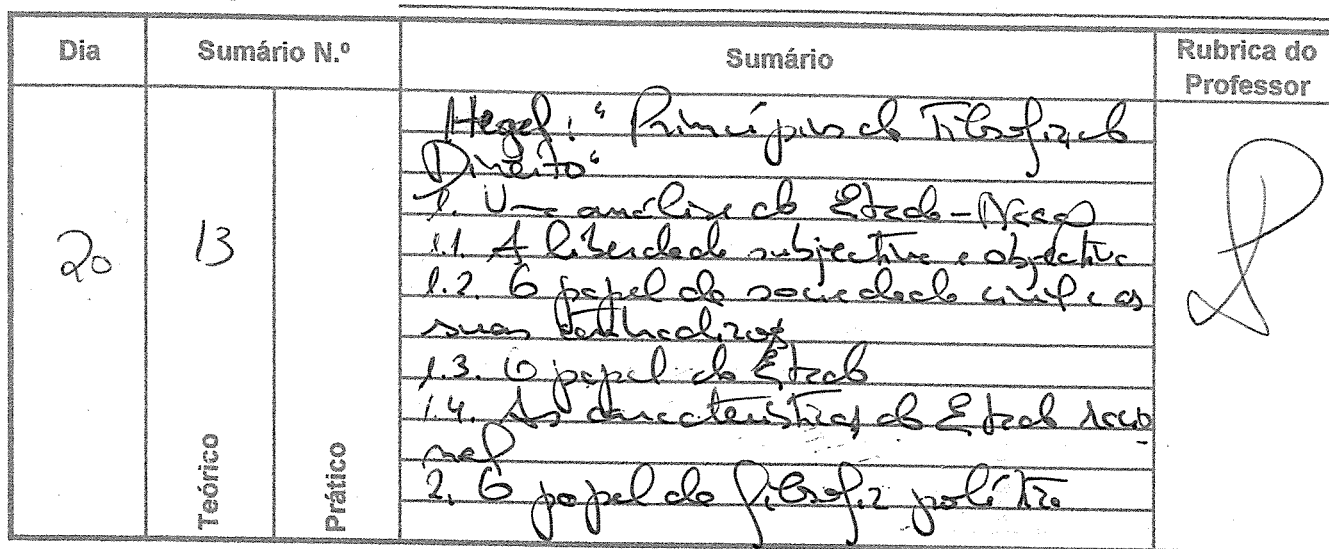 Dia
Sumário N.º
Sumário
Rubrica do
Professor
20
13
Teórico
Prático
Hegel: "Princípios da Filosofia do
Direito"
1. Uma análise do Estado-Nação
1.1. A liberdade subjectiva e objectiva
1.2. O papel da sociedade civil e as
suas
1.3. O papel do Estado
1.4. As características do Estado racio-
nal
2. O papel da filosofia política